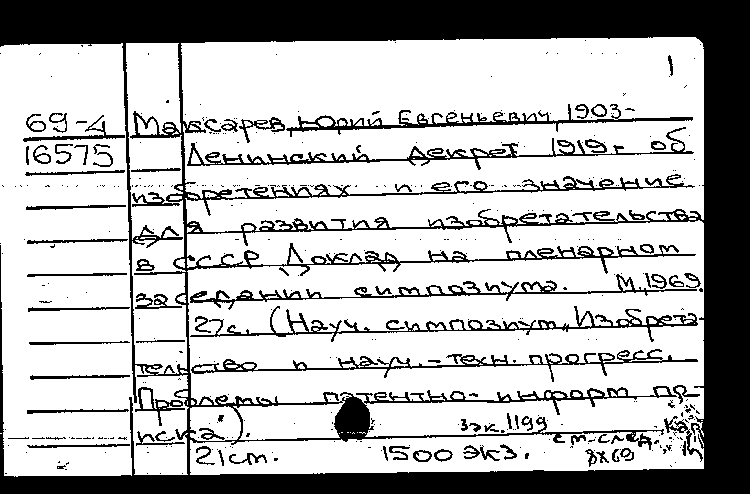 1
69-4 Максарев, Юрий Евгеньевич, 1903-
16575 Ленинский декрет 1919 г. об
изобретениях и его значение
для развития изобретательства
в СССР Доклад на пленарном
заседании симпозиума. М, 1969.
27с. (Науч. симпозиум „Изобрета-
тельство и науч.-техн. прогресс.
Проблемы патентно-информ. по-
иска").
зэк. 1199
см. след. Кар
21см. 1500 экз. 8X69